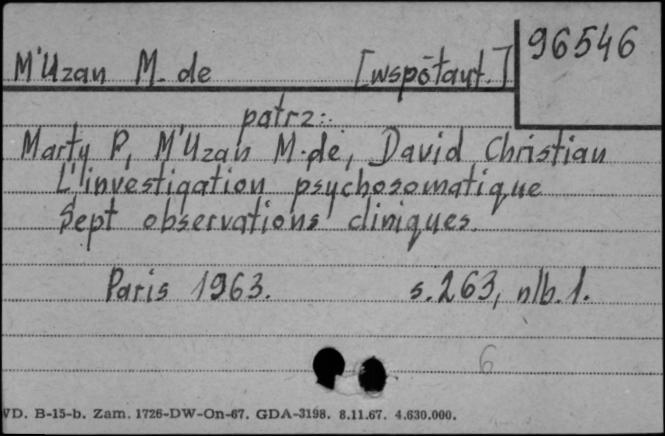 96546
M'Uzan M. de [współaut.]
patrz:
Marty P, M'Uzan M. de, David Christian
L'investigation psychosomatique
Sept observations cliniques.
Paris 1963. s. 263, nlb. 1.
6
VD. B-15-b. Zam. 1726-DW-On-67. GDA-3198. 8.11.67. 4.630.000.